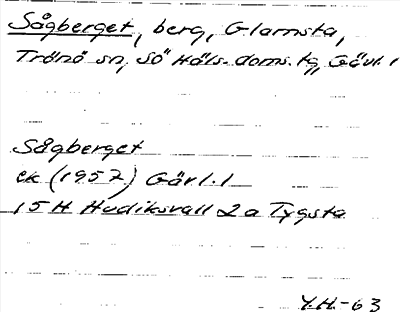 Sågberget, berg, Glamsta,
Trönö sn, Sö Häls. doms. tg, Gävl. l
Sågberget
ek (1957) Gävl. l
15 H Hudiksvall 2 a Tygsta
Y.H.-63